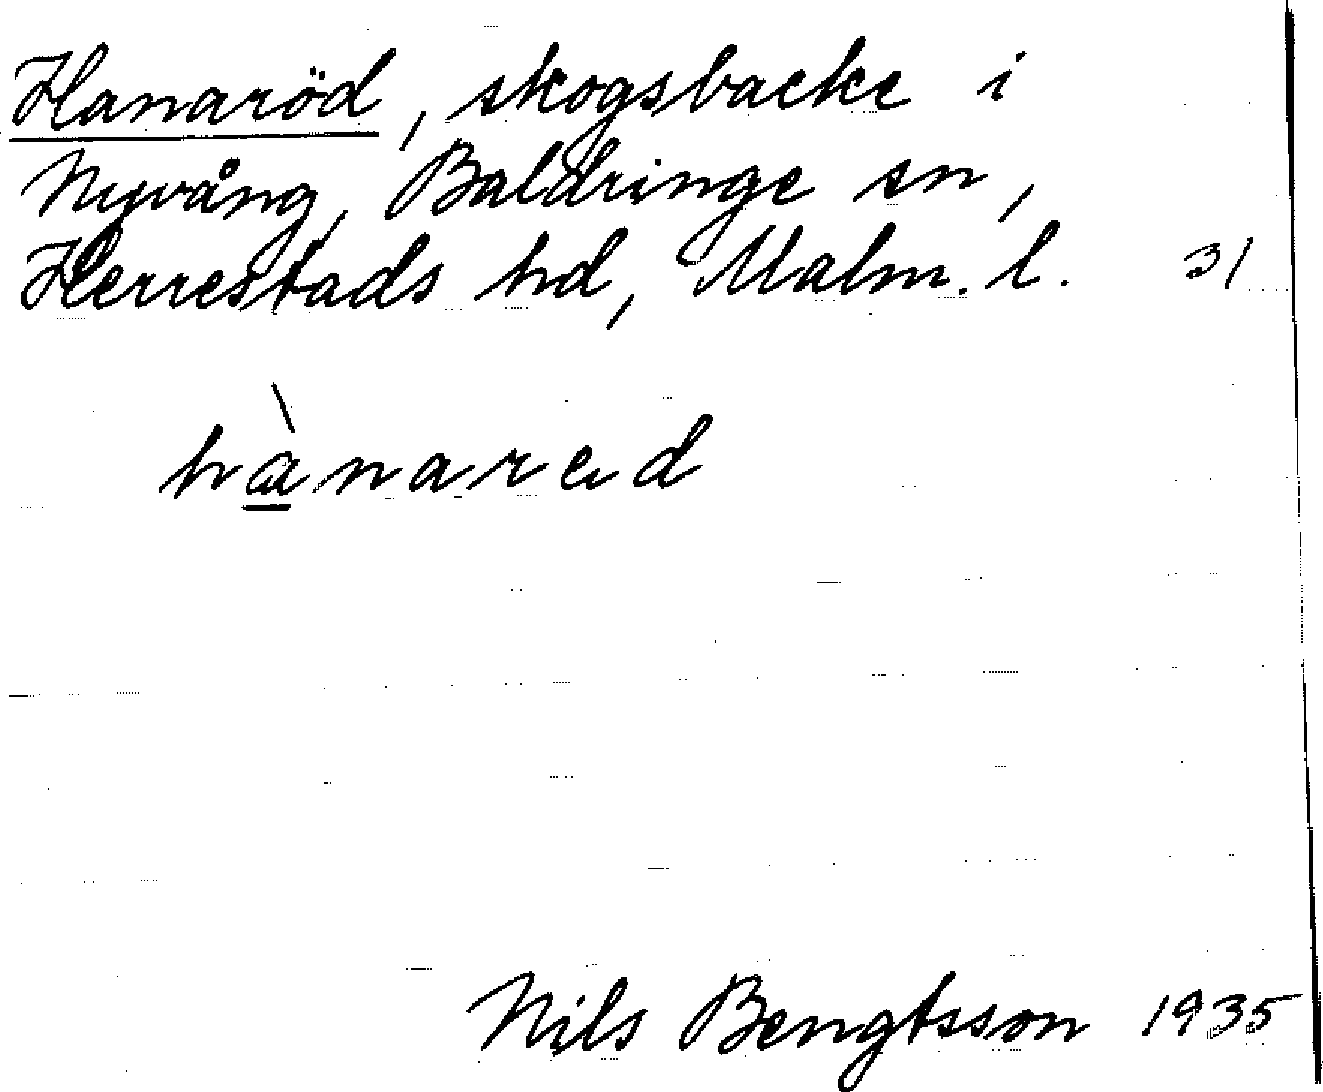 Hanaröd, skogsbacke i
Nyvång, Baldringe sn,
Herrestads hd, Malm. l. 31
hànared
Nils Bengtsson 1935